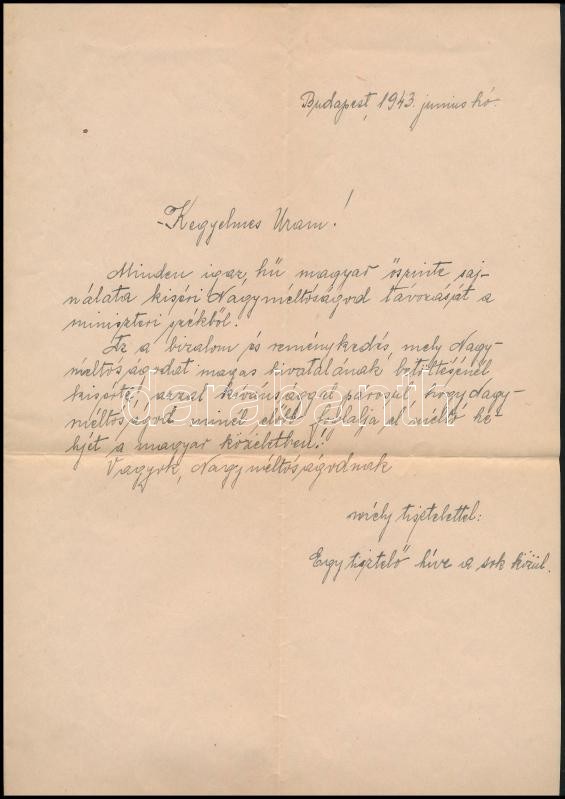 Budapest, 1943. junius hó.
Kegyelmes Uram!
Minden igaz, hű magyar őszinte saj-
nálata kiséri Nagyméltóságod távozását a
miniszteri székből.
Ez a bizalom és reménykedés, mely Nagy-
méltóságodat magas hivatalának betöltésénél
kisérte, azzal a kívánsággal párosul, hogy Nagy-
méltóságod minél előbb foglalja el méltó he-
lyét a magyar közéletben!
Vagyok, Nagyméltóságodnak
mély tisztelettel:
Egy tisztelő híve a sok közül.
darabanth